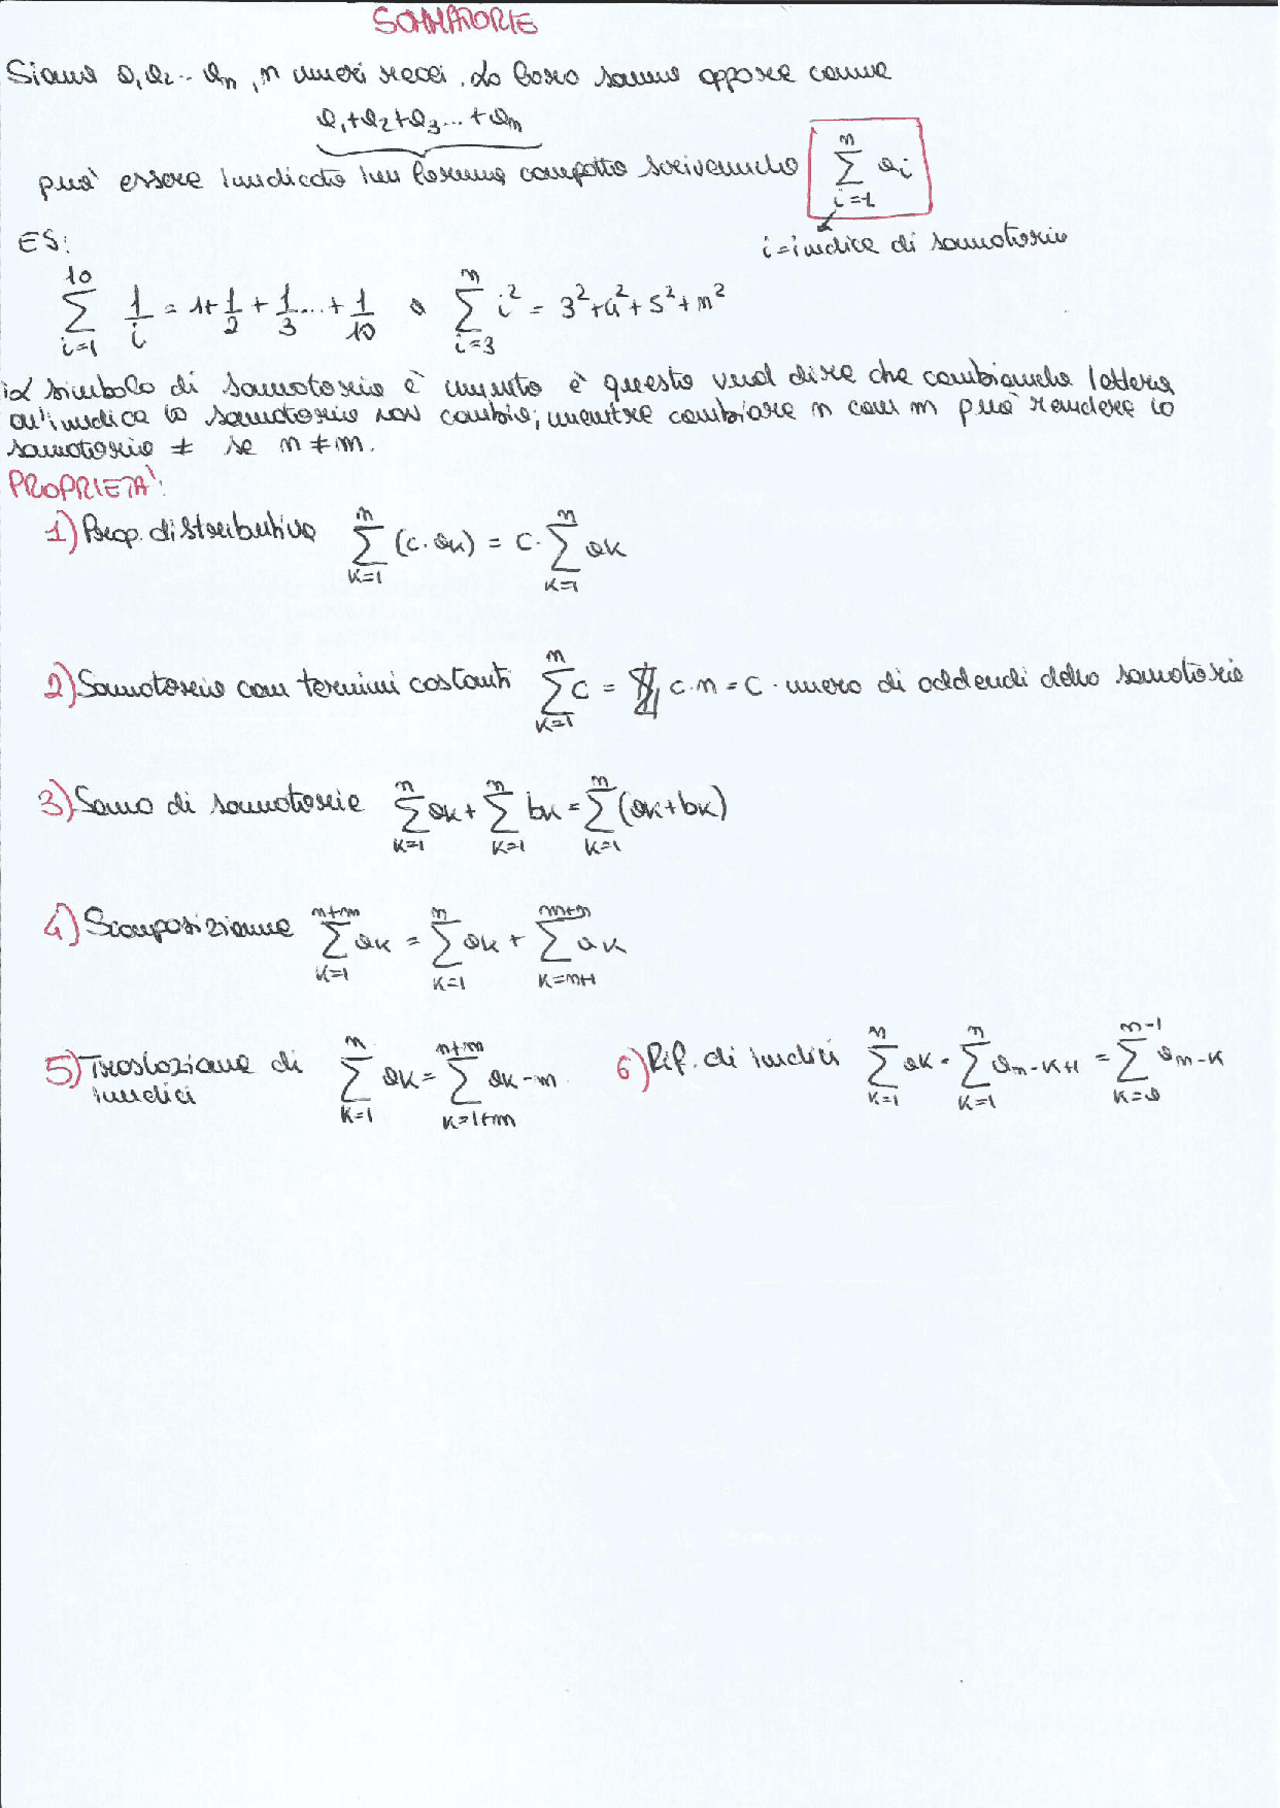 SOMMATORIE
Siano a₁ a₂ ... aₙ, n numeri reali. La loro somma oppure come
a₁+a₂+a₃...+aₙ
può essere indicata in forma compatta scrivendo ∑_{i=1}^{n} aᵢ
i=indice di sommatoria
ES:
∑_{i=1}^{10} 1/i = 1+1/2+1/3...+1/10 o ∑_{i=3}^{n} i² = 3²+4²+5²+n²
Il simbolo di sommatoria è muto è questo vuol dire che cambiando lettera
all'indica la sommatoria non cambia; mentre cambiare n con m può rendere la
sommatoria ≠ se n≠m.
PROPRIETA':
1) Prop. distributiva ∑_{k=1}^{n} (c·aₖ) = c·∑_{k=1}^{n} aₖ
2) Sommatoria con termini costanti ∑_{k=1}^{n} c = c·n = c·numero di addendi della sommatoria
3) Somma di sommatorie ∑_{k=1}^{n} aₖ + ∑_{k=1}^{n} bₖ = ∑_{k=1}^{n} (aₖ+bₖ)
4) Scomposizione ∑_{k=1}^{n+m} aₖ = ∑_{k=1}^{n} aₖ + ∑_{k=n+1}^{m+n} aₖ
5) Traslazione di indici ∑_{k=1}^{n} aₖ = ∑_{k=1+m}^{n+m} a_{k-m}
6) Rif. di indici ∑_{k=1}^{n} aₖ = ∑_{k=1}^{n} a_{n-k+1} = ∑_{k=0}^{n-1} a_{n-k}